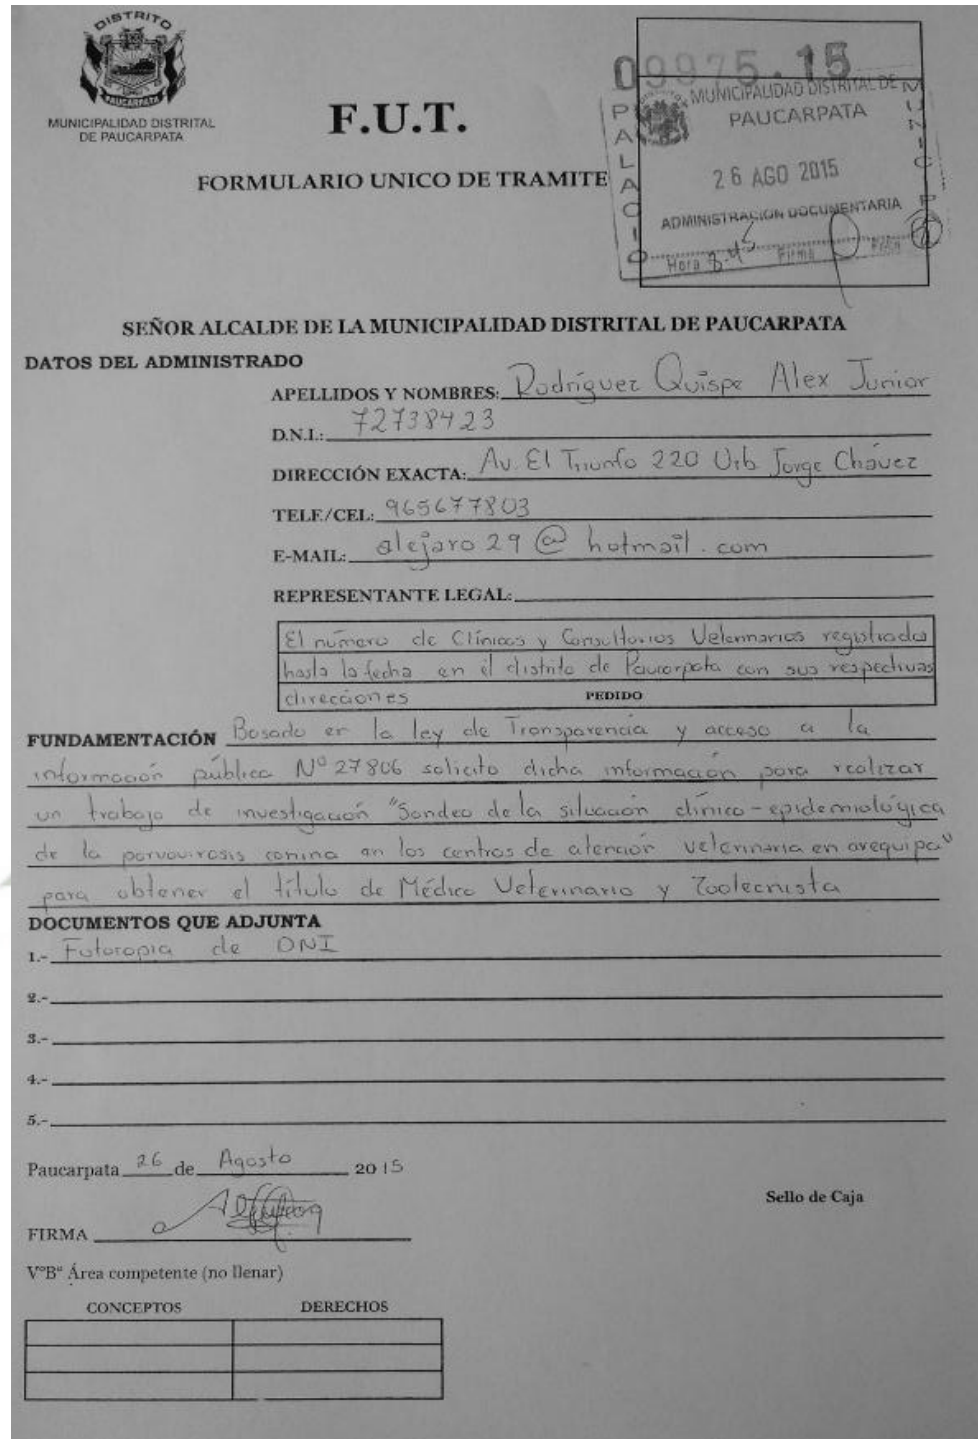 DISTRITO
PAUCARPATA
MUNICIPALIDAD DISTRITAL
DE PAUCARPATA
F.U.T.
FORMULARIO UNICO DE TRAMITE
09975.15
MUNICIPALIDAD DISTRITAL DE
PAUCARPATA
PALACIO
26 AGO 2015
ADMINISTRACION DOCUMENTARIA
Hora 8:45 Firma
SEÑOR ALCALDE DE LA MUNICIPALIDAD DISTRITAL DE PAUCARPATA
DATOS DEL ADMINISTRADO
APELLIDOS Y NOMBRES: Rodríguez Quispe Alex Junior
D.N.I.: 72738423
DIRECCIÓN EXACTA: Av. El Triunfo 220 Urb Jorge Chávez
TELF./CEL: 965677803
E-MAIL: alejaro29@hotmail.com
REPRESENTANTE LEGAL:
El número de Clínicas y Consultorios Veterinarios registrados
hasta la fecha en el distrito de Paucarpata con sus respectivas
direcciones PEDIDO
FUNDAMENTACIÓN Basado en la ley de Transparencia y acceso a la
información pública Nº 27806 solicito dicha información para realizar
un trabajo de investigación "Sondeo de la situación clínico-epidemiológica
de la parvovirosis canina en los centros de atención veterinaria en arequipa"
para obtener el título de Médico Veterinario y Zootecnista
DOCUMENTOS QUE ADJUNTA
1.- Fotocopia de DNI
2.-
3.-
4.-
5.-
Paucarpata 26 de Agosto 2015
Sello de Caja
FIRMA
VºBº Área competente (no llenar)
CONCEPTOS DERECHOS